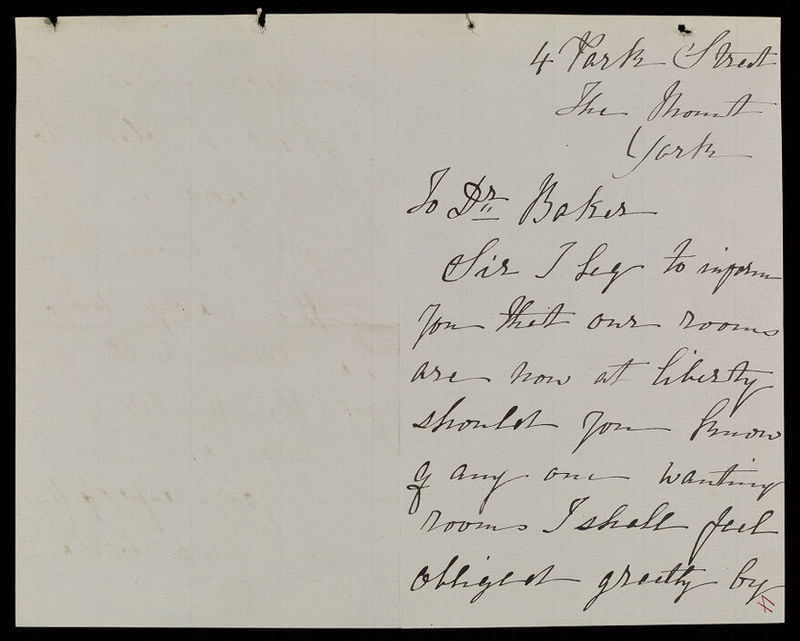 4 Park Street
The Mount
York
To Dr. Baker
Sir I beg to inform
you that our rooms
are now at liberty
should you know
of any one wanting
rooms I shall feel
obliged greatly by